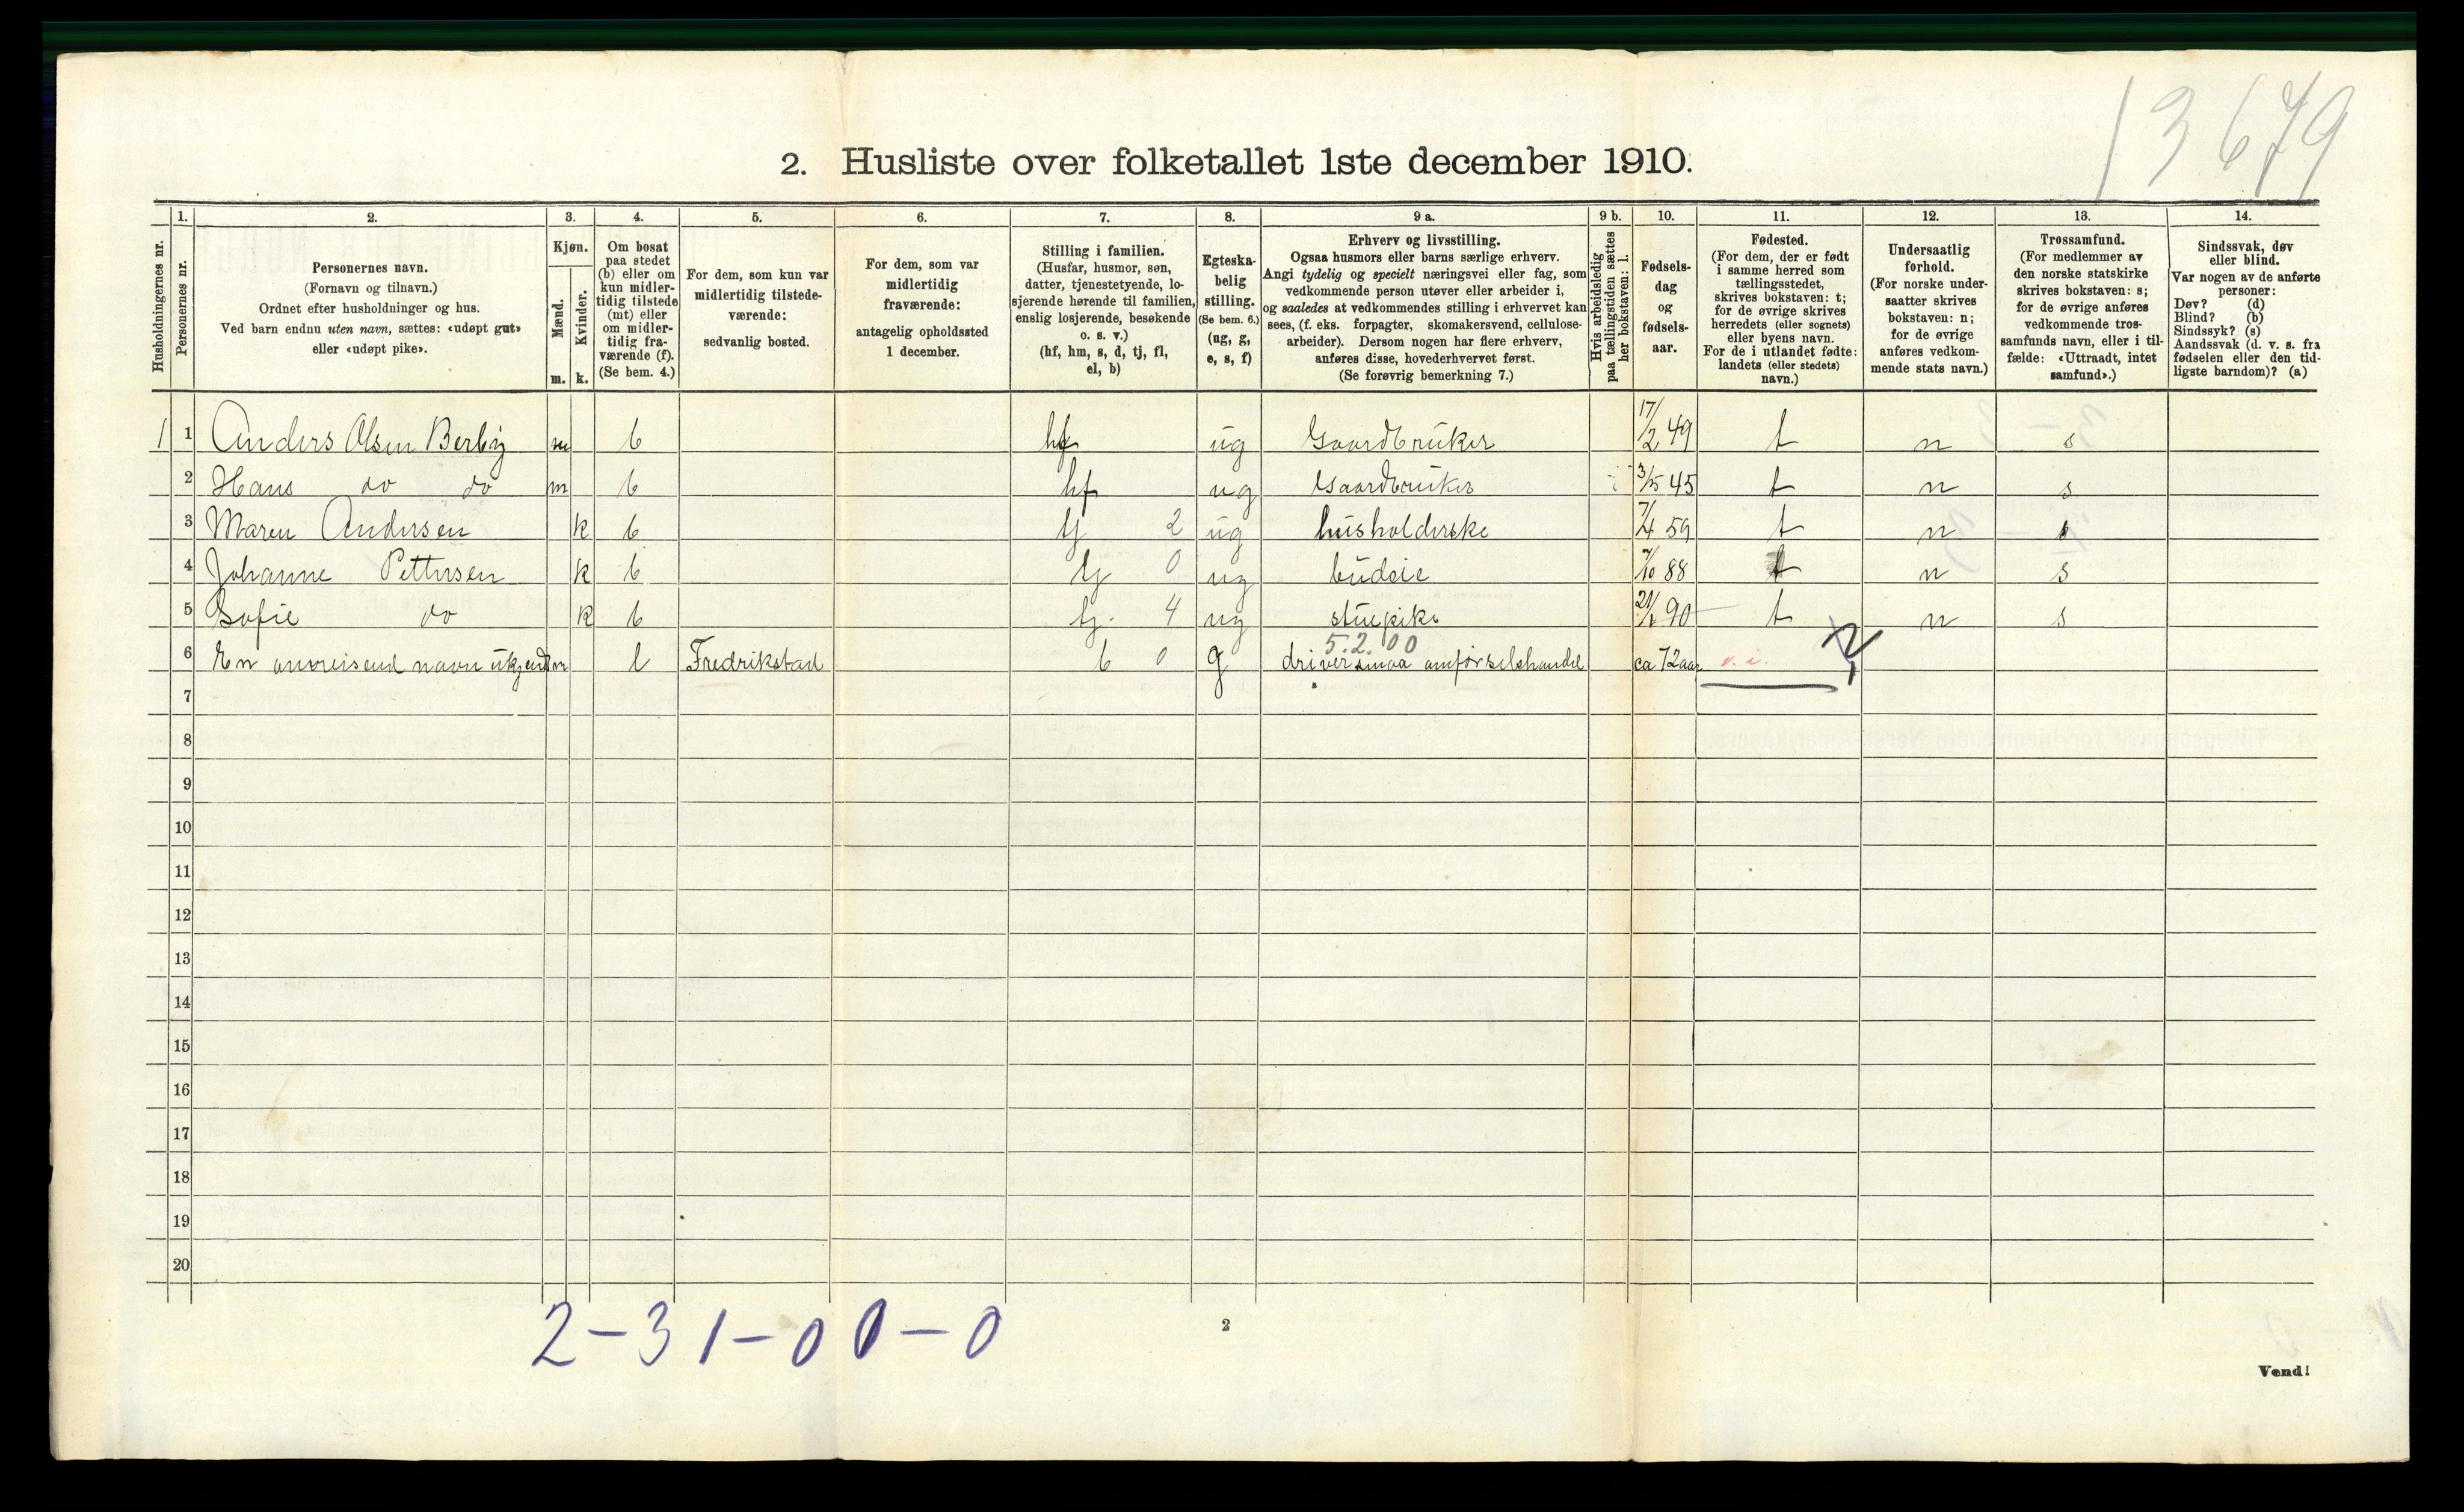 13679
2. Husliste over folketallet 1ste december 1910.
Husholdningernes nr.
1.
Personernes nr.
2.
Personernes navn.
(Fornavn og tilnavn.)
Ordnet efter husholdninger og hus.
Ved barn endnu uten navn, sættes: «udøpt gut»
eller «udøpt pike».
3.
Kjøn.
Mænd.
Kvinder.
m. k.
4.
Om bosat
paa stedet
(b) eller om
kun midler-
tidig tilstede
(mt) eller
om midler-
tidig fra-
værende (f).
(Se bem. 4.)
5.
For dem, som kun var
midlertidig tilstede-
værende:
sedvanlig bosted.
6.
For dem, som var
midlertidig
fraværende:
antagelig opholdssted
1 december.
7.
Stilling i familien.
(Husfar, husmor, søn,
datter, tjenestetyende, lo-
sjerende hørende til familien,
enslig losjerende, besøkende
o. s. v.)
(hf, hm, s, d, tj, fl,
el, b)
8.
Egteska-
belig
stilling.
(Se bem. 6.)
(ug, g,
e, s, f)
9 a.
Erhverv og livsstilling.
Ogsaa husmors eller barns særlige erhverv.
Angi tydelig og specielt næringsvei eller fag, som
vedkommende person utøver eller arbeider i,
og saaledes at vedkommendes stilling i erhvervet kan
sees, (f. eks. forpagter, skomakersvend, cellulose-
arbeider). Dersom nogen har flere erhverv,
anføres disse, hovederhvervet først.
(Se forøvrig bemerkning 7.)
9 b.
Hvis arbeidsledig
paa tællingstiden sættes
her bokstaven: l.
10.
Fødsels-
dag
og
fødsels-
aar.
11.
Fødested.
(For dem, der er født
i samme herred som
tællingsstedet,
skrives bokstaven: t;
for de øvrige skrives
herredets (eller sognets)
eller byens navn.
For de i utlandet fødte:
landets (eller stedets)
navn.)
12.
Undersaatlig
forhold.
(For norske under-
saatter skrives
bokstaven: n;
for de øvrige
anføres vedkom-
mende stats navn.)
13.
Trossamfund.
(For medlemmer av
den norske statskirke
skrives bokstaven: s;
for de øvrige anføres
vedkommende tros-
samfunds navn, eller i til-
fælde: «Uttraadt, intet
samfund».)
14.
Sindssvak, døv
eller blind.
Var nogen av de anførte
personer:
Døv? (d)
Blind? (b)
Sindssyk? (s)
Aandssvak (d. v. s. fra
fødselen eller den tid-
ligste barndom)? (a)
1 1 Anders Olsen Berby m b hf ug Gaardbruker 17/2 49 t n s
2 Hans do do m b hf ug Gaardbruker 3/5 45 t n s
3 Maren Andersen k b tj 2 ug husholderske 7/4 59 t n s
4 Johanne Pettersen k b tj 0 ug budeie 7/10 88 t n s
5 Sofie do k b tj. 4 ug stuepike 21/1 90 t n s
5.2.00
6 En omreisend navn ukjendt m b Fredrikstad b 0 g driver smaa omførselshandel ca 72 aar v. i.
7
8
9
10
11
12
13
14
15
16
17
18
19
20
2-3 1-0 0-0
2
Vend!